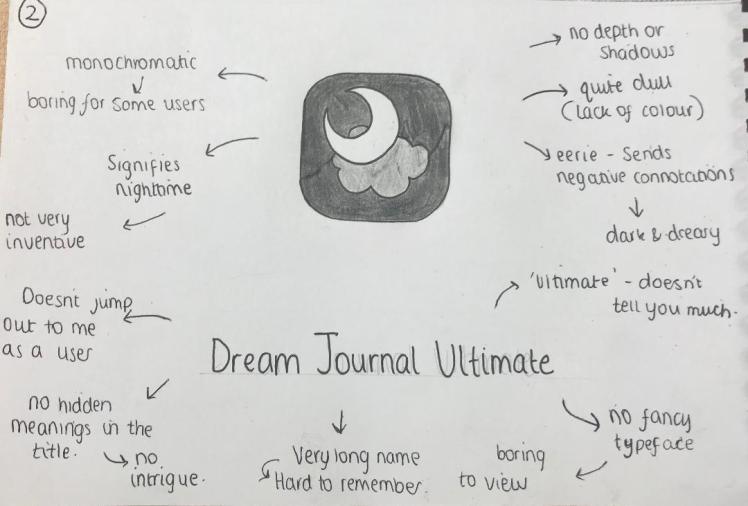 2
monochromatic
boring for some users
Signifies
nightime
not very
inventive
Doesn't jump
out to me
as a user
no hidden
meanings in the
title.
no
intrigue.
no depth or
shadows
quite dull
(lack of colour)
eerie - Sends
negative connotations
dark & dreary
'Ultimate' - doesn't
tell you much.
Dream Journal Ultimate
Very long name
Hard to remember.
no fancy
typeface
boring
to view